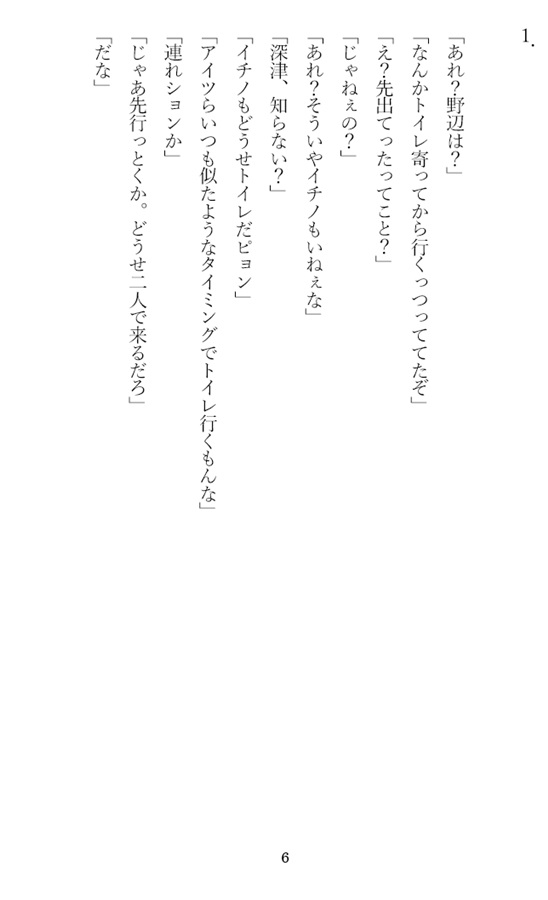 1.
「あれ？野辺は？」
「なんかトイレ寄ってから行くっつってたぞ」
「え？先出てったってこと？」
「じゃねぇの？」
「あれ？そういやイチノもいねぇな」
「深津、知らない？」
「イチノもどうせトイレだピョン」
「アイツらいつも似たようなタイミングでトイレ行くもんな」
「連れションか」
「じゃあ先行っとくか。どうせ二人で来るだろ」
「だな」
6